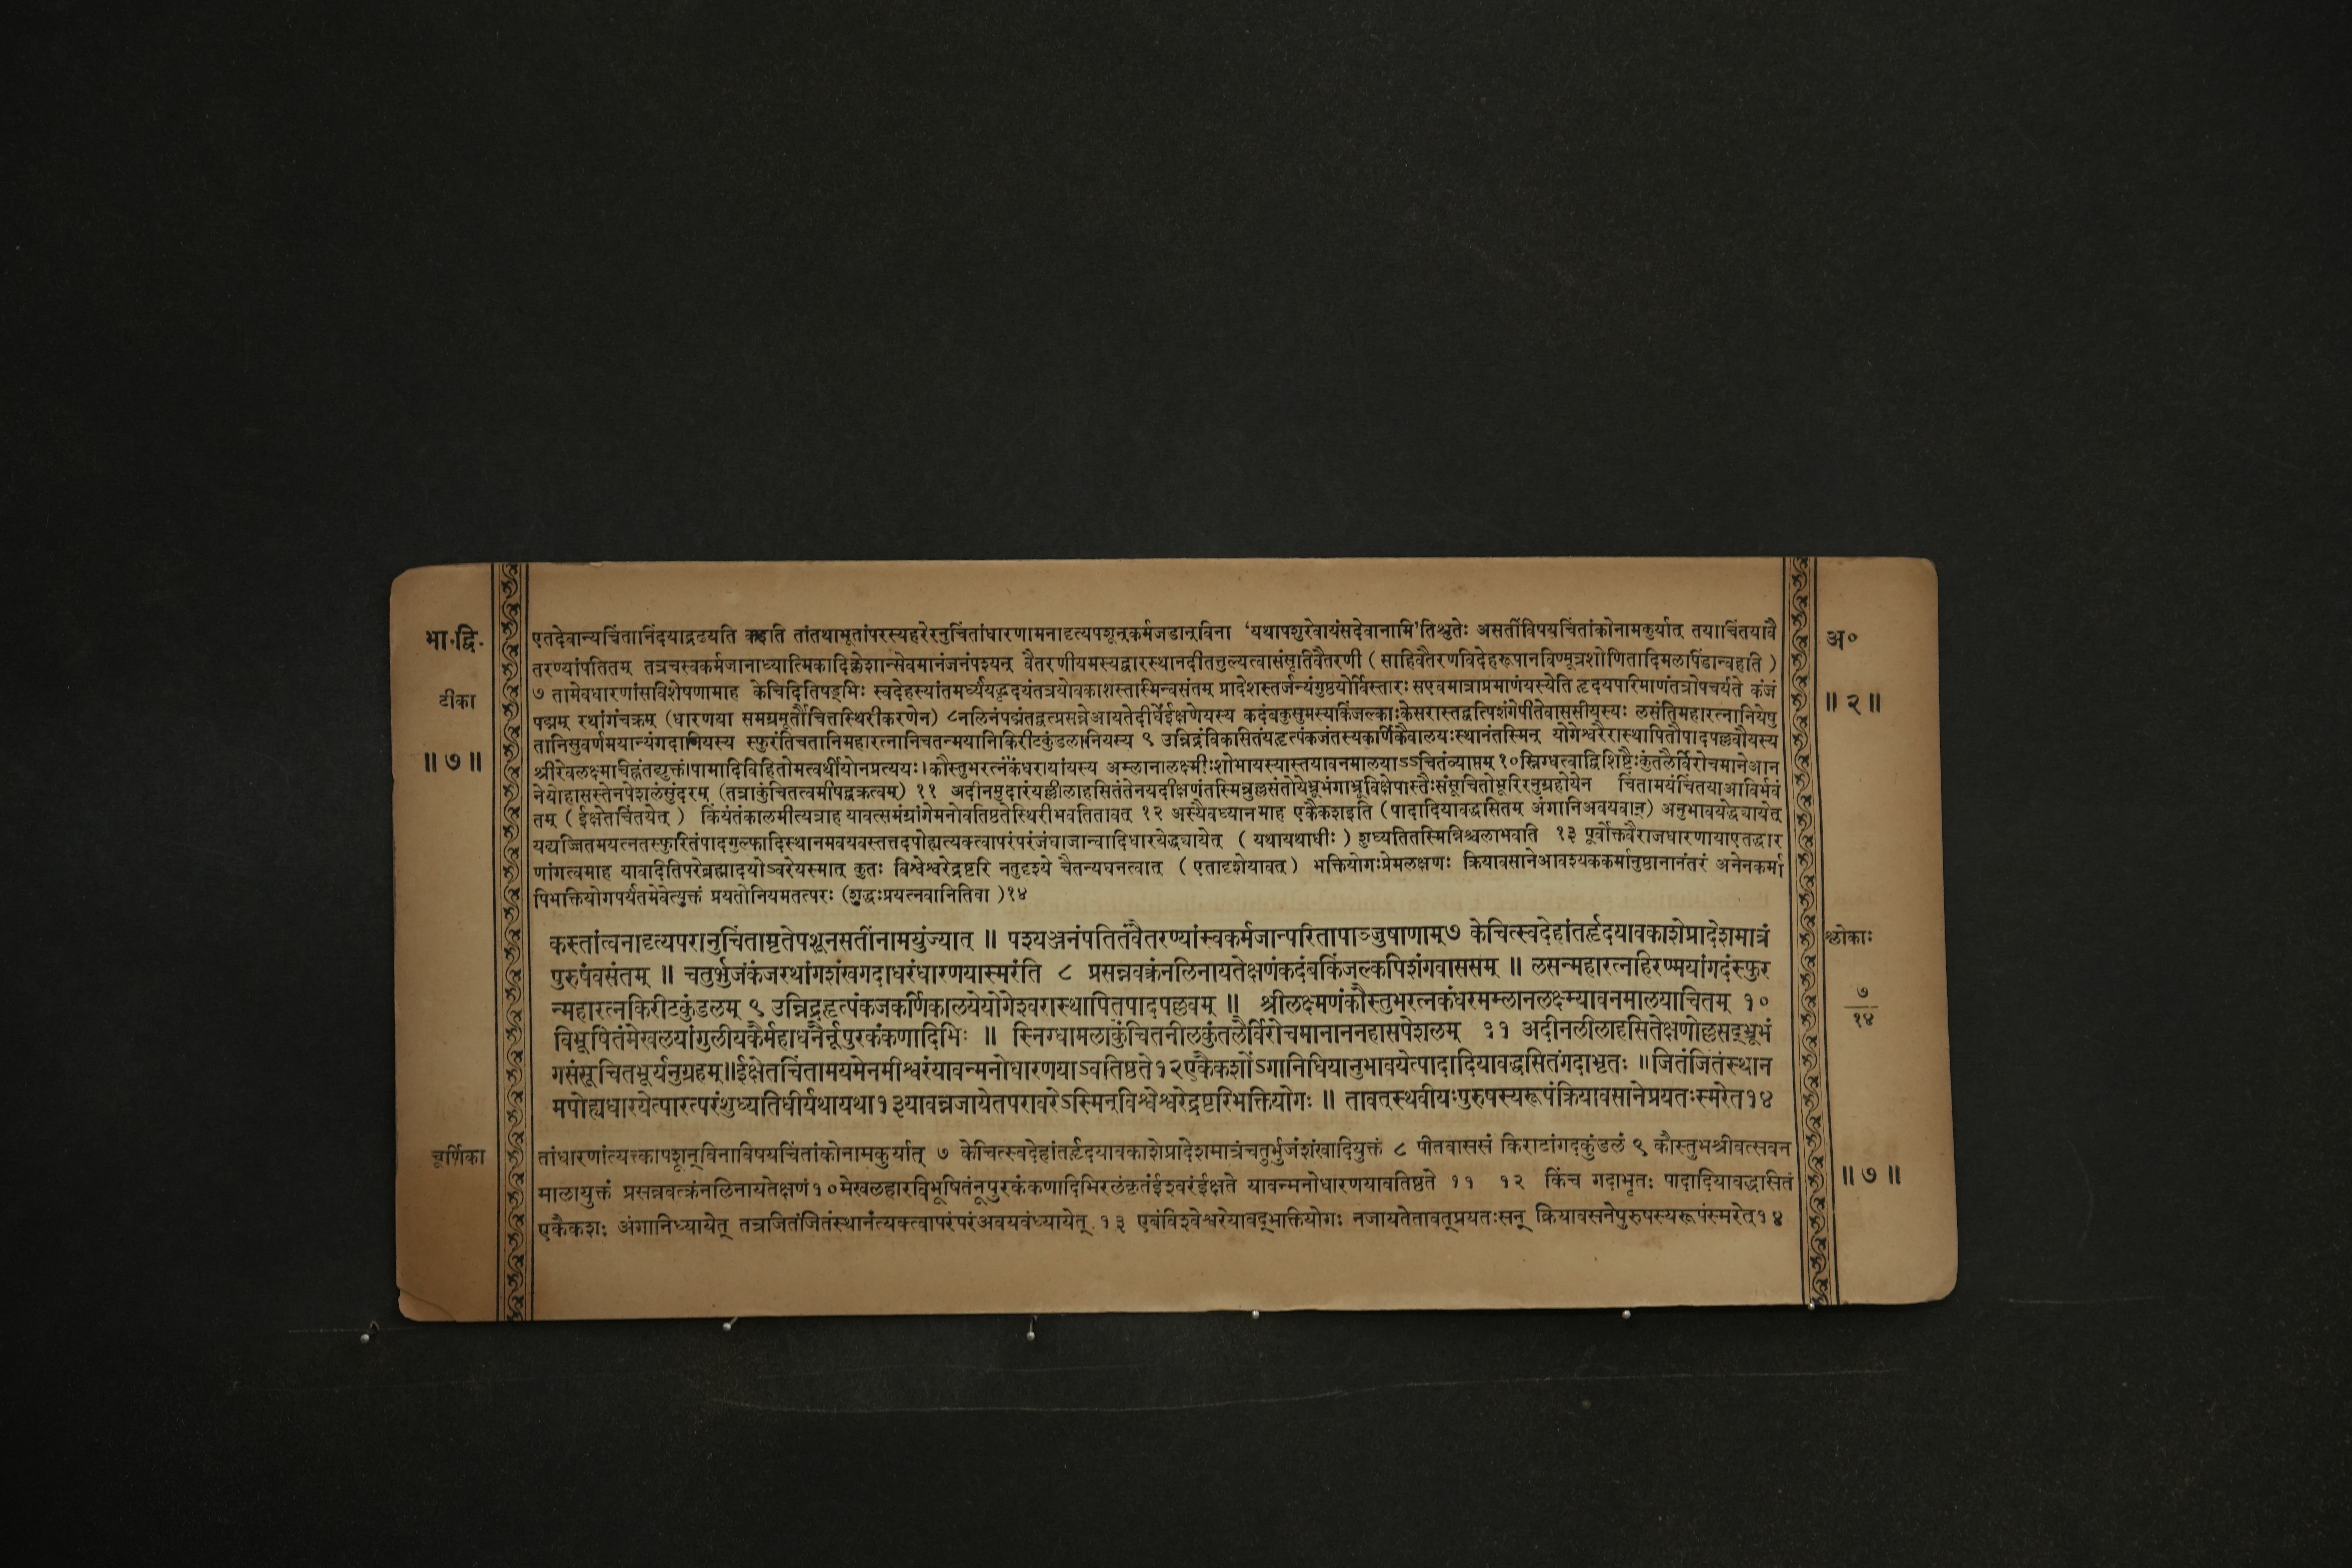 भा.द्वि.
टीका
॥ ७ ॥
एतदेवान्यचिंतानिंदयाद्रढयति कइति तांतथाभूतांपरस्यहरेरनुचिंतांधारणामनादृत्यपशून्कर्मजडान्विना ‘यथापशुरेवायंसदेवानामि’तिश्रुतेः असतींविषयचिंतांकोनामकुर्यात् तयाचिंतयावै
तरण्यांपतितम् तत्रचस्वकर्मजानाध्यात्मिकादिक्लेशान्सेवमानंजनंपश्यन् वैतरणीयमस्यद्वारस्थानदीतत्तुल्यत्वात्संसृतिर्वैतरणी ( साहिवैतरणविदेहरूपानविण्मूत्रशोणितादिमलपिंडान्वहति )
७ तामेवधारणांसविशेषणामाह केचिदितिषड्भिः स्वदेहस्यांतमर्ध्येयद्धृदयंतत्रयोवकाशस्तास्मिन्वसंतम् प्रादेशस्तर्जन्यंगुष्ठयोर्विस्तारः सएवमात्राप्रमाणंयस्येति हृदयपरिमाणंतत्रोपचर्यते कंजं
पद्मम् रथांगंचक्रम् (धारणया समग्रमूर्तौचित्तस्थिरीकरणेन) ८नलिनंपद्मंतद्वत्प्रसन्नेआयतेदीर्घेईक्षणेयस्य कदंबकुसुमस्यकिंजल्काःकेसरास्तद्वत्पिशंगेपीतेवाससीयस्यः लसंतिमहारत्नानियेषु
तानिसुवर्णमयान्यंगदानियस्य स्फुरंतिचतानिमहारत्नानिचतन्मयानिकिरीटकुंडलानियस्य ९ उन्निद्रंविकसितंयद्धृत्पंकजंतस्यकर्णिकैवालयःस्थानंतस्मिन् योगेश्वरैरास्थापितौपादपल्लवौयस्य
श्रीरेवलक्ष्माचिह्नंतद्युक्तं।पामादिविहितोमत्वर्थीयोनप्रत्ययः।कौस्तुभरत्नंकंधरायांयस्य अम्लानालक्ष्मीःशोभायस्यास्तयावनमालयाऽऽचितंव्याप्तम् १०स्निग्धत्वाद्विशिष्टैःकुंतलैर्विरोचमानेआन
नेयोहासस्तेनपेशलंसुंदरम् (तत्राकुंचितत्वमीषद्वक्रत्वम्) ११ अदीनमुदारंयल्लीलाहसितंतेनयदीक्षणंतस्मिन्नुल्लसंतोयेभ्रूभंगाभ्रूविक्षेपास्तैःसंसूचितोभूरिरनुग्रहोयेन चिंतामयंचिंतयाआविर्भवं
तम् ( ईक्षेतचिंतयेत् ) कियंतंकालमीत्यत्राह यावत्समंग्रांगेमनोवतिष्ठतेस्थिरीभवतितावत् १२ अस्यैवध्यानमाह एकैकशइति (पादादियावद्धसितम् अंगानिअवयवान्) अनुभावयेद्ध्यायेत्
यद्यज्जितमयत्नतस्फुरितंपादगुल्फादिस्थानमवयवस्तत्तदपोह्यत्यक्त्वापरंपरंजंघाजान्वादिधारयेद्ध्यायेत् ( यथायथाधीः ) शुध्यतितस्मिन्निश्चलाभवति १३ पूर्वोक्तवैराजधारणायाएतद्धार
णांगत्वमाह यावदितिपरेब्रह्मादयोऽवरेयस्मात् कुतः विश्वेश्वरेद्रष्टरि नतुदृश्ये चैतन्यघनत्वात् ( एतादृशेयावत् ) भक्तियोगःप्रेमलक्षणः क्रियावसानेआवश्यककर्मानुष्ठानानंतरं अनेनकर्मा
पिभक्तियोगपर्यंतमेवेत्युक्तं प्रयतोनियमतत्परः (शुद्धःप्रयत्नवानितिवा )१४
कस्तांत्वनादृत्यपरानुचिंतामृतेपशूनसतींनामयुंज्यात् ॥ पश्यञ्जनंपतितंवैतरण्यांस्वकर्मजान्परितापाञ्जुषाणाम्७ केचित्स्वदेहांतर्हृदयावकाशेप्रादेशमात्रं
पुरुषंवसंतम् ॥ चतुर्भुजंकंजरथांगशंखगदाधरंधारणयास्मरंति ८ प्रसन्नवक्त्रंनलिनायतेक्षणंकदंबकिंजल्कपिशंगवाससम् ॥ लसन्महारत्नहिरण्मयांगदंस्फुर
न्महारत्नकिरीटकुंडलम् ९ उन्निद्रहृत्पंकजकर्णिकालयेयोगेश्वरास्थापितपादपल्लवम् ॥ श्रीलक्ष्मणंकौस्तुभरत्नकंधरमम्लानलक्ष्म्यावनमालयाचितम् १०
विभूषितंमेखलयांगुलीयकैर्महाधनैर्नूपुरकंकणादिभिः ॥ स्निग्धामलाकुंचितनीलकुंतलैर्विरोचमानाननहासपेशलम् ११ अदीनलीलाहसितेक्षणोल्लसद्भ्रूभं
गसंसूचितभूर्यनुग्रहम्॥ईक्षेतचिंतामयमेनमीश्वरंयावन्मनोधारणयाऽवतिष्ठते१२एकैकशोंऽगानिधियानुभावयेत्पादादियावद्धसितंगदाभृतः ॥जितंजितंस्थान
मपोह्यधारयेत्परत्परंशुध्यतिधीर्यथायथा१३यावन्नजायेतपरावरेऽस्मिन्विश्वेश्वरेद्रष्टरिभक्तियोगः ॥ तावत्स्थवीयःपुरुषस्यरूपंक्रियावसानेप्रयतःस्मरेत१४
चूर्णिका
तांधारणांत्यक्त्कापशून्विनाविषयचिंतांकोनामकुर्यात् ७ केचित्स्वदेहांतर्हृदयावकाशेप्रादेशमात्रंचतुर्भुजंशंखादियुक्तं ८ पीतवाससं किराटांगदकुंडलं ९ कौस्तुभश्रीवत्सवन
मालायुक्तं प्रसन्नवत्क्रंनलिनायतेक्षणं१०मेखलहारविभूषितंनूपुरकंकणादिभिरलंकृतंईश्वरंईक्षते यावन्मनोधारणयावतिष्ठते ११ १२ किंच गदाभृतः पादादियावद्धासितं
एकैकशः अंगानिध्यायेत् तत्रजितंजितंस्थानंत्यक्त्वापरंपरंअवयवंध्यायेत् १३ एवंविश्वेश्वरेयावद्भक्तियोगः नजायतेतावत्प्रयतःसन् क्रियावसनेपुरुषस्यरूपंस्मरेत्१४
अ०
॥ २ ॥
श्लोकाः
७
१४
॥ ७ ॥